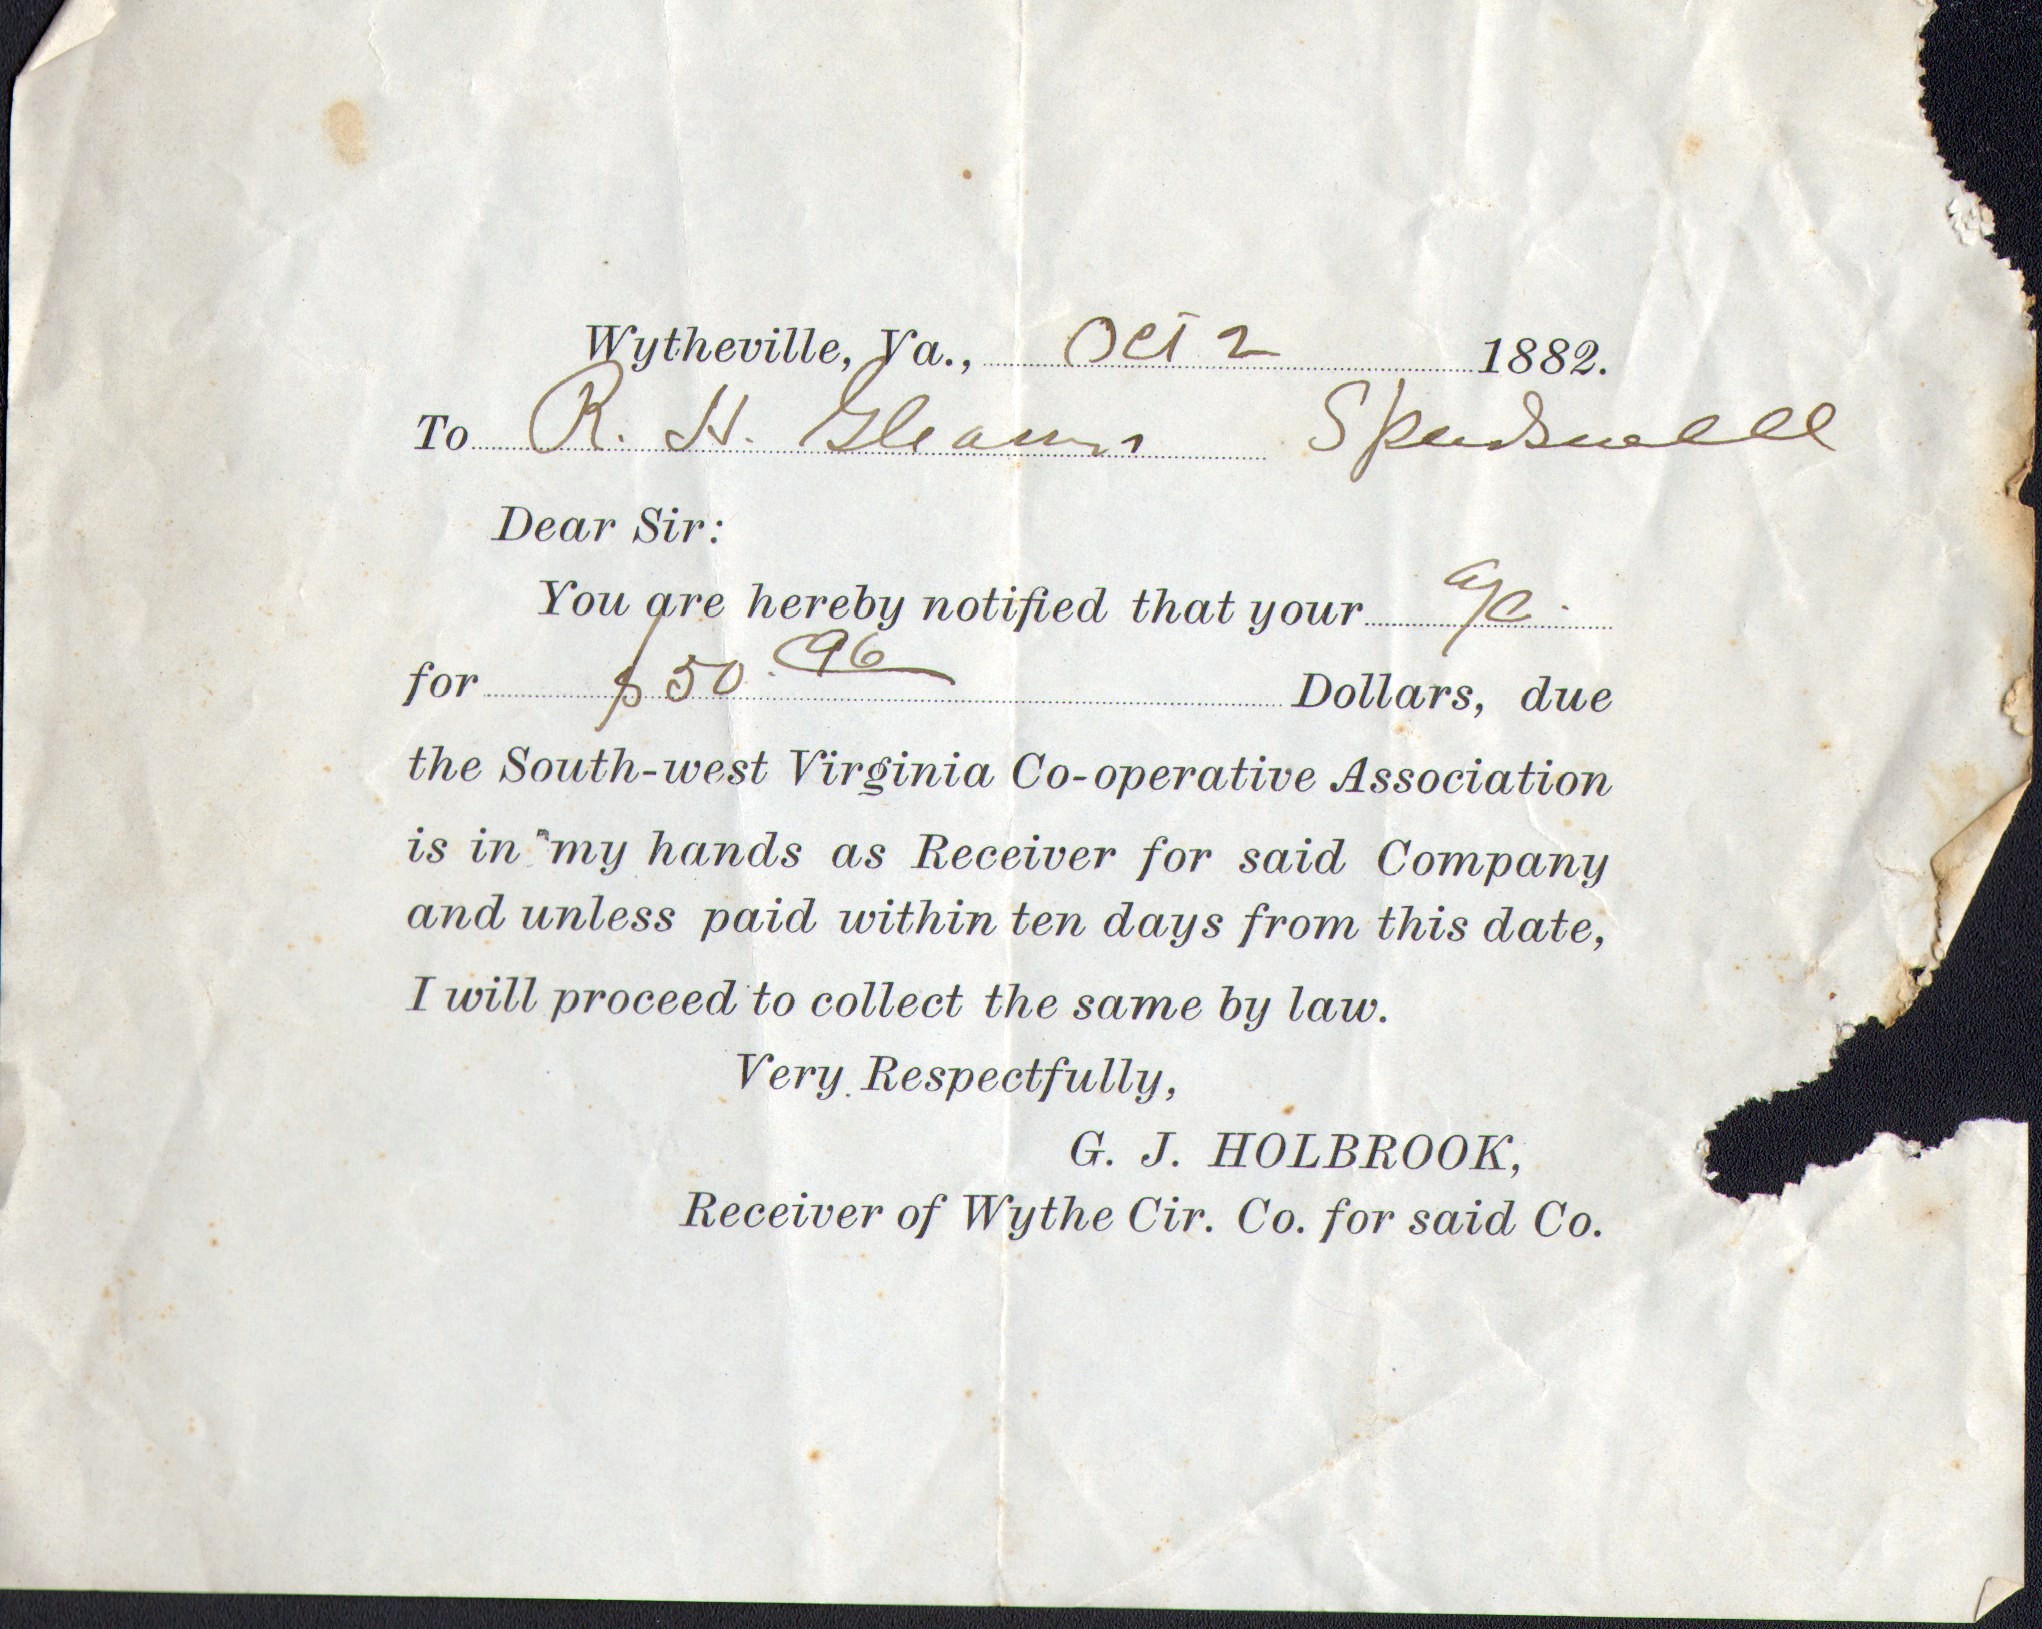 Wytheville, Va., Oct 2 1882.
To R. H. Gleaves Speedwell
Dear Sir:
You are hereby notified that your a/c.
for $50.96 Dollars, due
the South-west Virginia Co-operative Association
is in my hands as Receiver for said Company
and unless paid within ten days from this date,
I will proceed to collect the same by law.
Very Respectfully,
G. J. HOLBROOK,
Receiver of Wythe Cir. Co. for said Co.